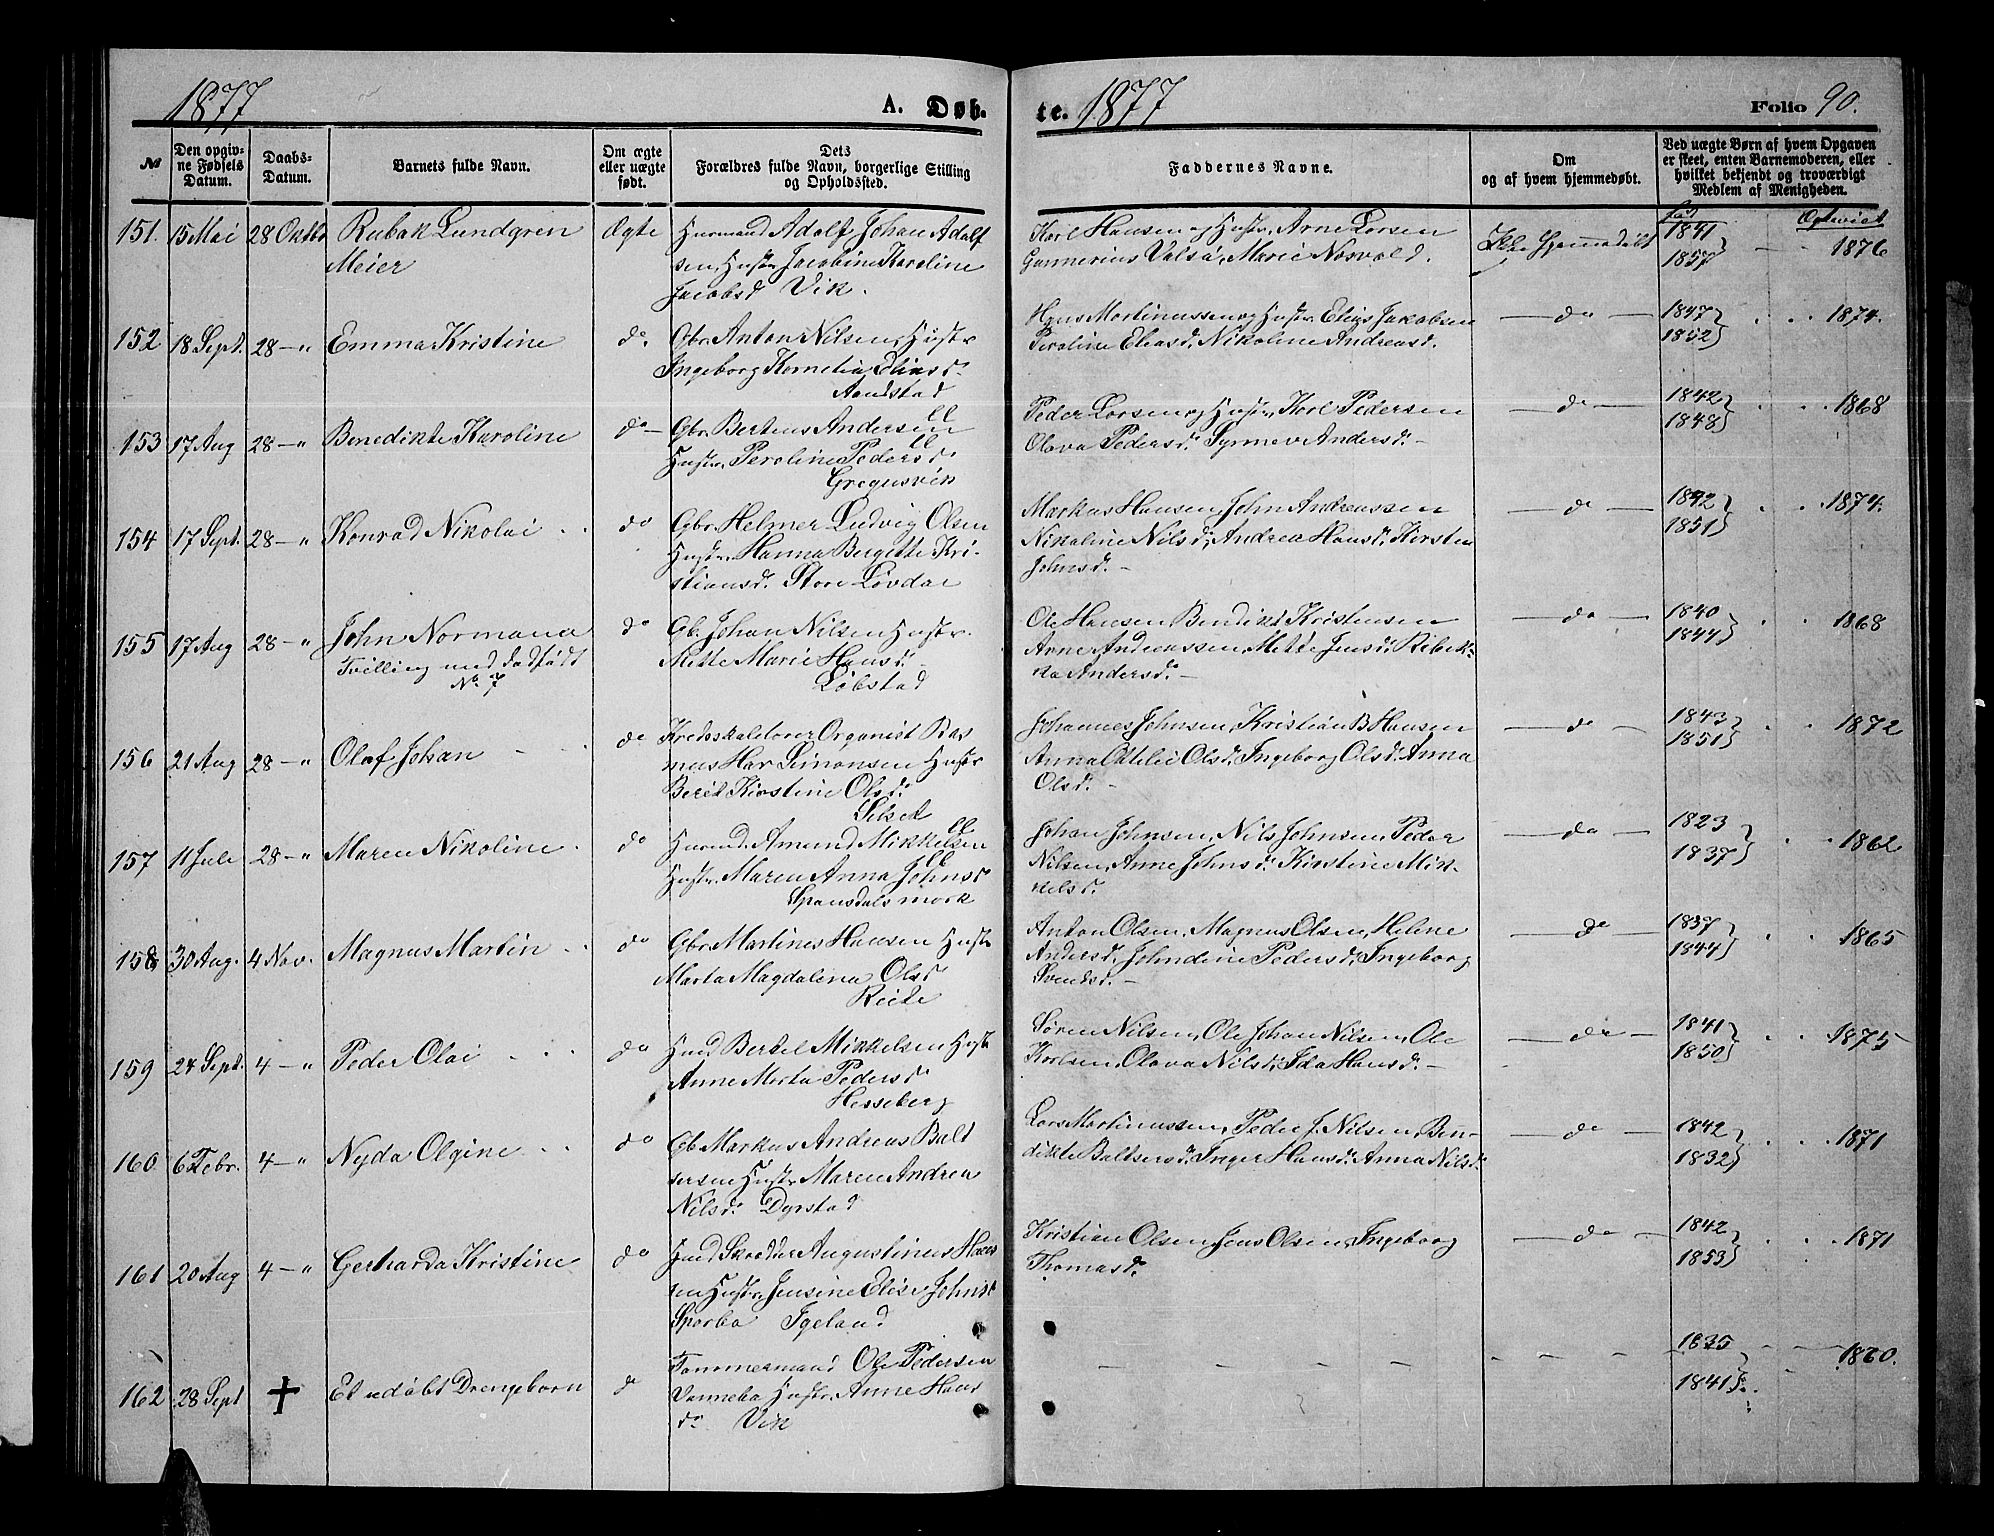 1877
A. Døb-
te. 1877
Folio 90.
№
Den opgiv-
ne Fødsels
Datum.
Daabs-
Datum.
Barnets fulde Navn.
Om ægte
eller uægte
født.
Dets
Forældres fulde Navn, borgerlige Stilling
og Opholdssted.
Faddernes Navne.
Om
og af hvem hjemmedøbt.
Ved uægte Børn af hvem Opgaven
er skeet, enten Barnemoderen, eller
hvilket bekjendt og troværdigt
Medlem af Menigheden.
151. 15 Mai 28 Oktbr Rubak Lundgren Ægte Huusmand Adolf Johan Adolf
Meier sen, Hustr. Jacobine Karoline
Jacobsd Vik.
Karl Hansen og Hustr. Arne Larsen
Gunnerius Valsø, Marie Norvald.
Ikke Hjemmedøbt
født
1841
1857
Ægteviet
1876
152 18 Sept. 28 — " Emma Kristine do. Gbr. Anton Nilsen, Hustr
Ingeborg Kornelia Eliasd.
Aandstad
Hans Martinussen og Hustr. Elias Jakobsen
Peroline Eliasd. Nikoline Andreasd.
— do —
1847
1852
1874.
153 17 Aug 28 — " Benedikte Karoline do — Gbr. Berteus Andersen
Hustr. Peroline Pedersd
Gregusvik
Peder Larsen og Hustr. Karl Pedersen
Olava Pedersd. Synnev Andersd. —
— do —
1842
1848
1868
154 17 Sept. 28 — " Konrad Nikolai do Gbr. Helmer Ludvig Olsen
Hustr. Hanna Bergitte Kri-
stiansd. Store Løvdal
Markus Hansen, John Andreassen
Nikoline Nilsd. Andrea Hansd. Kirsten
Johnsd. —
— do —
1842
1851
1874.
155 17 Aug 28 — " John Normann do Gb. Johan Nilsen Hustr.
Tvilling med dødfødt Mette Marie Hansd.
No 7 Løbstad
Ole Hansen Bendikt Kristensen
Arne Andreassen, Mette Jensd. Rebek-
ka Andersd.
— do —
1840
1844
1868
156 21 Aug 28 — " Olaf Johan do Kredsskolelærer Organist Ras
mus Har Simonsen Hustr
Berit Kirstine Olsd.
Selset
Johannes Johnsen, Kristian B Hansen
Anna Otelie Olsd. Ingeborg Olsd. Anna
Olsd. —
— do —
1843
1851
1872
157 11 Juli 28 — " Maren Nikoline do Huusmd. Amund Mikkelsen
Hustr. Maren Anna Johnsd
Spansdalsmark
Johan Johnsen, Nils Johnsen, Peder
Nilsen, Anne Johnsd. Kirstine Mik-
kelsd.
— do —
1823
1837
1862
158 30 Aug. 4 Nov. Magnus Martin do Gbr. Martines Hansen Hustr
Marta Magdalena Olsd
Reite
Anton Olsen, Magnus Olsen, Heline
Andersd. Johndine Pedersd. Ingeborg
Svendsd. —
— do —
1837
1844
1865
159 24 Sept. 4 — " Peder Olai do Husmd Bertel Mikkelsen Hustr
Anne Marta Pedersd
Hesseberg
Søren Nilsen, Ole Johan Nilsen, Ole
Karlsen, Olava Nilsd. Ida Hansd. —
— do —
1841
1850
1875
160 6 Febr. 4 — " Nyda Olgine do Gb. Markus Andreas Balt
sersen Hustr. Maren Andrea
Nilsd. Dyrstad
Lars Martinussen, Peder J. Nilsen, Ben-
dikte Baltsersd. Inger Hansd. Anna Nilsd.
— do —
1842
1832
1871
161 20 Aug 4 — " Gerharda Kristine do Husmd Skrædder Augustinus Han
sen Hustr. Jensine Elise Johnsd
Sparbo Igeland
Kristian Olsen, Jens Olsen, Ingeborg
Thomasd.
— do —
1842
1853
1871
162 28 Sept † Et udøbt Drengebarn do Tømmermand Ole Pedersen
Hustr. Anne Hans
do Vik
1835
1841
1860.